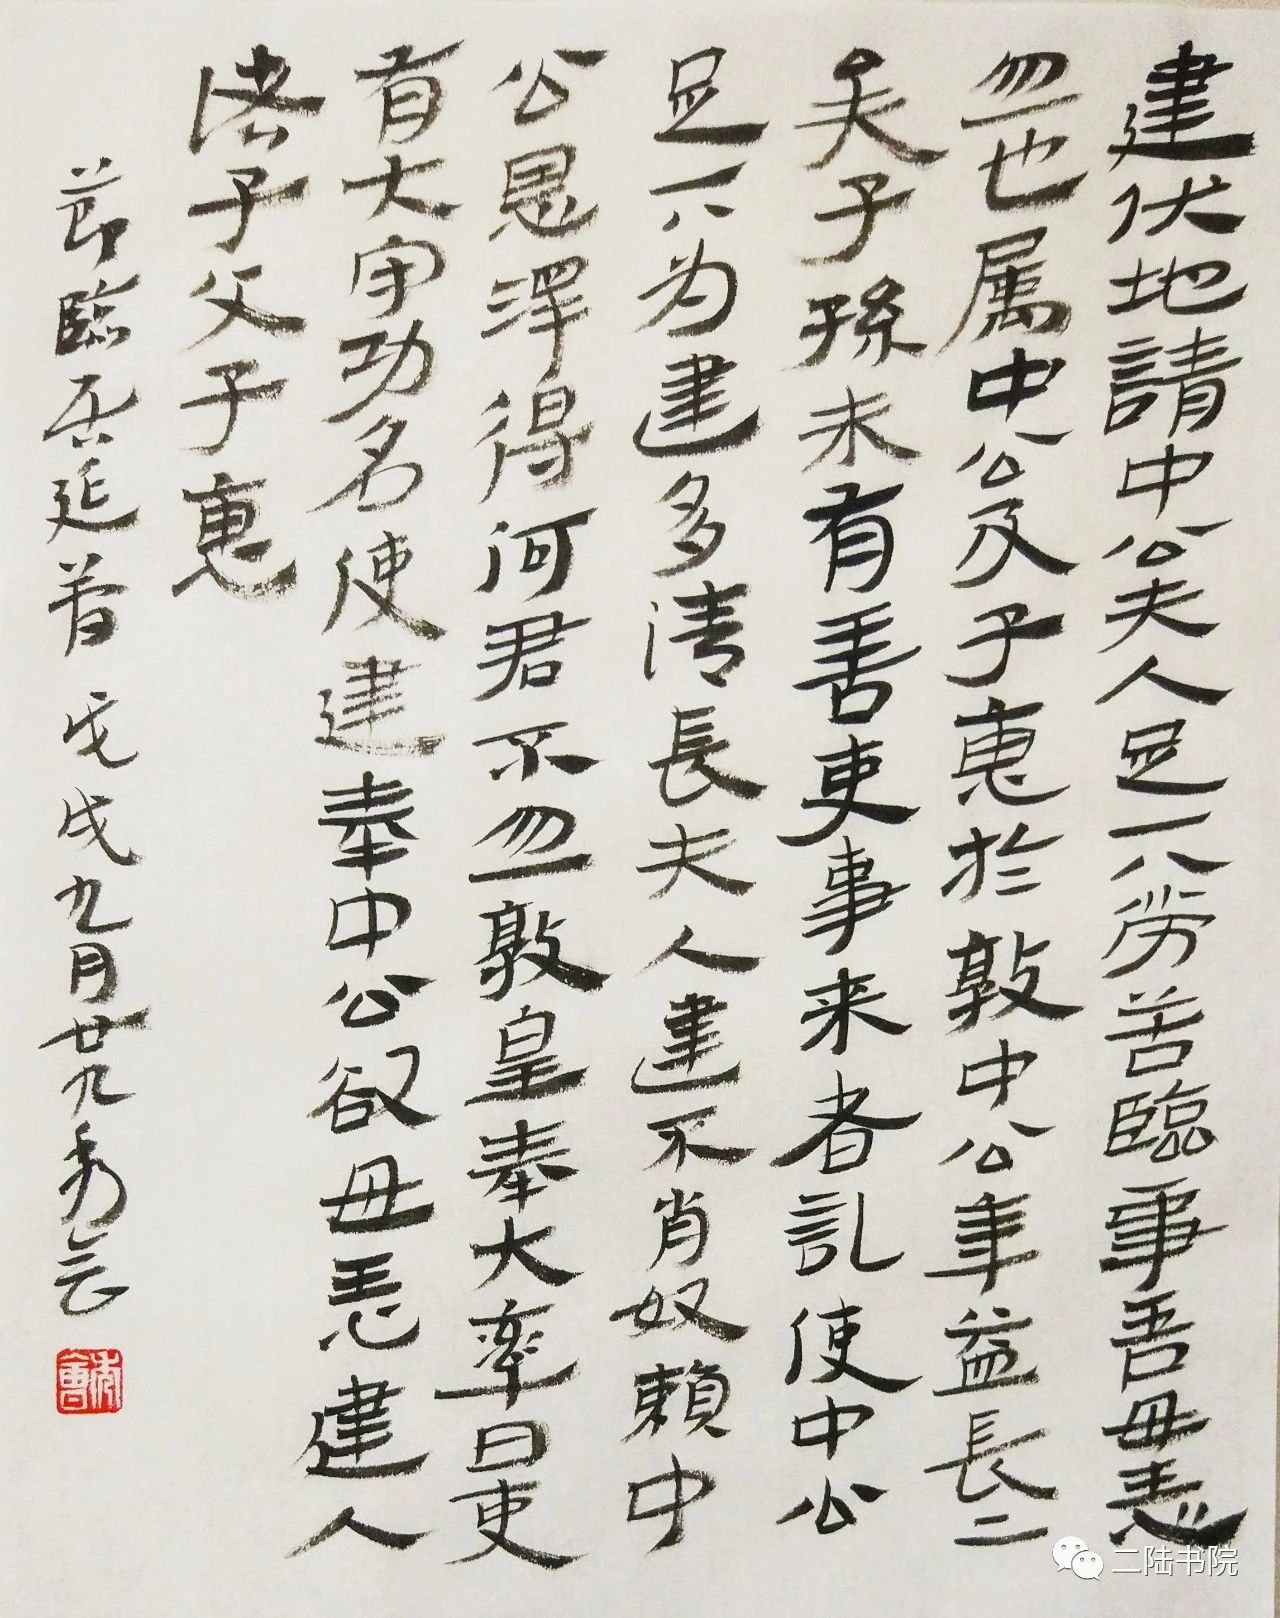 建伏地請中公夫人足下勞苦臨事吾毋恙
忽也属中公及子惠於敦中公年益長二
矣子孫未有善吏事来者乱使中公
足下为建多請長夫人建不肖奴賴中
公恩澤得河君不忽敦皇奉大率曰吏
有大守功名使建奉中公欲毋恙建人
诸子父子惠
節臨居延
戊戌九月廿九
二陆书院